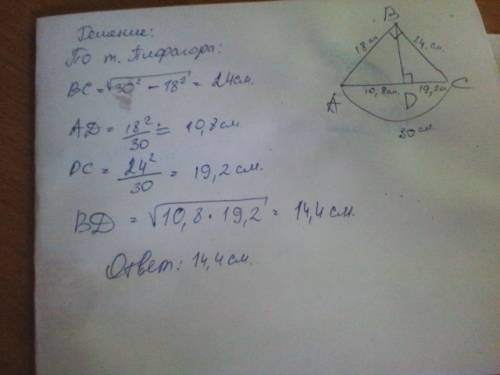 Решение:
По т. Пифагора:
BC = √30² - 18² = 24 см.
AD = 18²/30 = 10,8 см
DC = 24²/30 = 19,2 см.
BD = √10,8 · 19,2 = 14,4 см.
Ответ: 14,4 см.
B
18 см
14. см.
A
10,8 см
D
19,2 см
C
30 см.